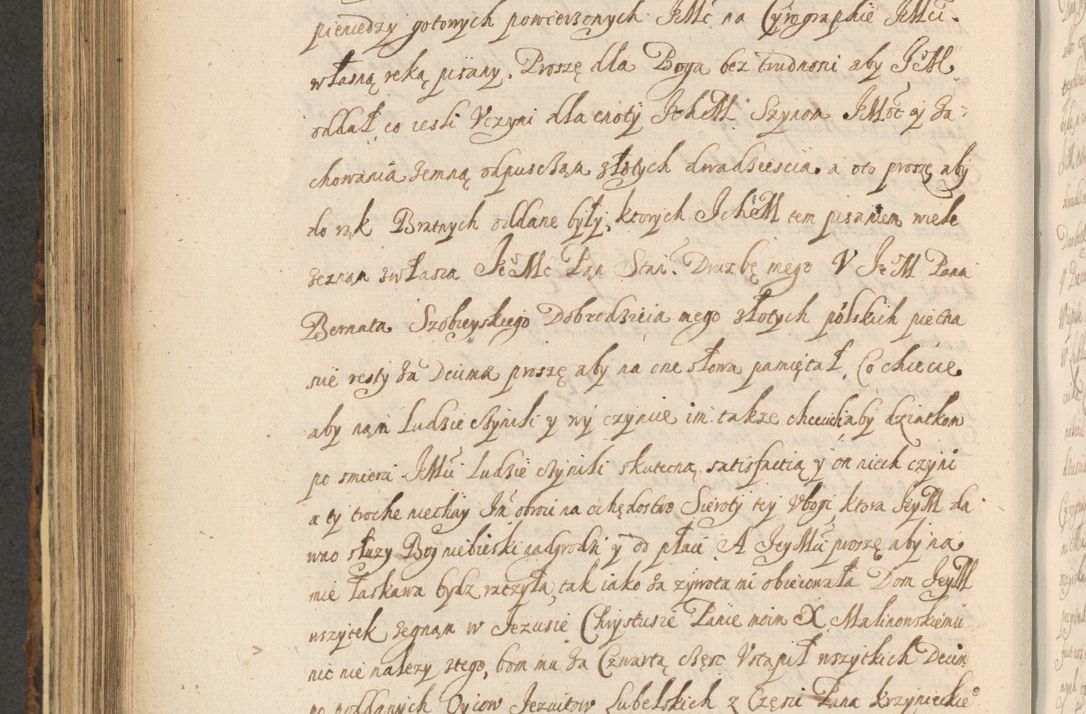 pieniedzy gotowych powierzonych JeMć na Cyrographie JeMci
własną reką pisany. Proszę dla Boga bez trudnoni aby JeM
oddał co iesli Vczyni dla cnoty Ich M Szynom JeMość y za
chowania zemną odpusczam złotych dwadziescia. a oto proszę aby
do rąk Bratnych oddane były, ktorych Ich M tem pisaniem wiele
zeznam zwłasza JeMć Pan Stan. Druzbę mego V JeM Pana
Bernata Szobieyskiego Dobredzieia mego złotych pólskich pietna
sie resty za Decima proszę aby na one słowa pamiętał, Co chiecie
aby nąm Ludzie czynili y wy czyncie im. takze chceciu aby dziatkom
po smierci JeMci Ludzie czynili skuteczną satisfactią y on niech czyni
a ty troche niechay Ja obroci na ochędostwo Sieroty tey Vbogi ktora JeyM da
wno słuzy Bog niebieski nadgrodzi y od płaci. A JeyMci proszę aby na
mie łaskawa bydz raczyła, tak iako za zywota mi obiecowała Dom JeyM
wszytek zegnam w Jezusie Chrystusie Panie moim X Malinowskiemu
nic nie nalezy ztego, bom mu za Czwartą częsc Vstąpił wszytkich Decim
po poddanych Oycow Jezuitow Lubelskich z Częsci Pana Krzynieckie°